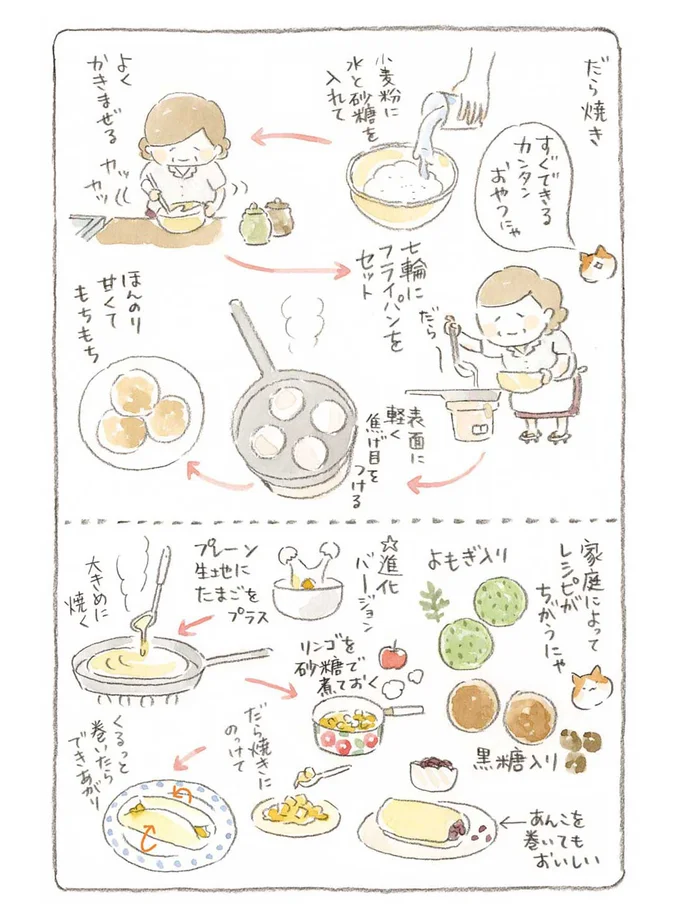 だら焼き
すぐできる
カンタン
おやつにゃ
小麦粉に
水と砂糖を
入れて
よく
かきまぜる
カッ
カッ
七輪に
フライパンを
セット
だら
表面に
軽く
焦げ目を
つける
ほんのり
甘くて
もちもち
家庭によって
レシピが
ちがうにゃ
よもぎ入り
黒糖入り
☆進化
バージョン
プレーン
生地に
たまごを
プラス
大きめに
焼く
リンゴを
砂糖で
煮ておく
だら焼きに
のっけて
くるっと
巻いたら
できあがり
←あんこを
巻いても
おいしい